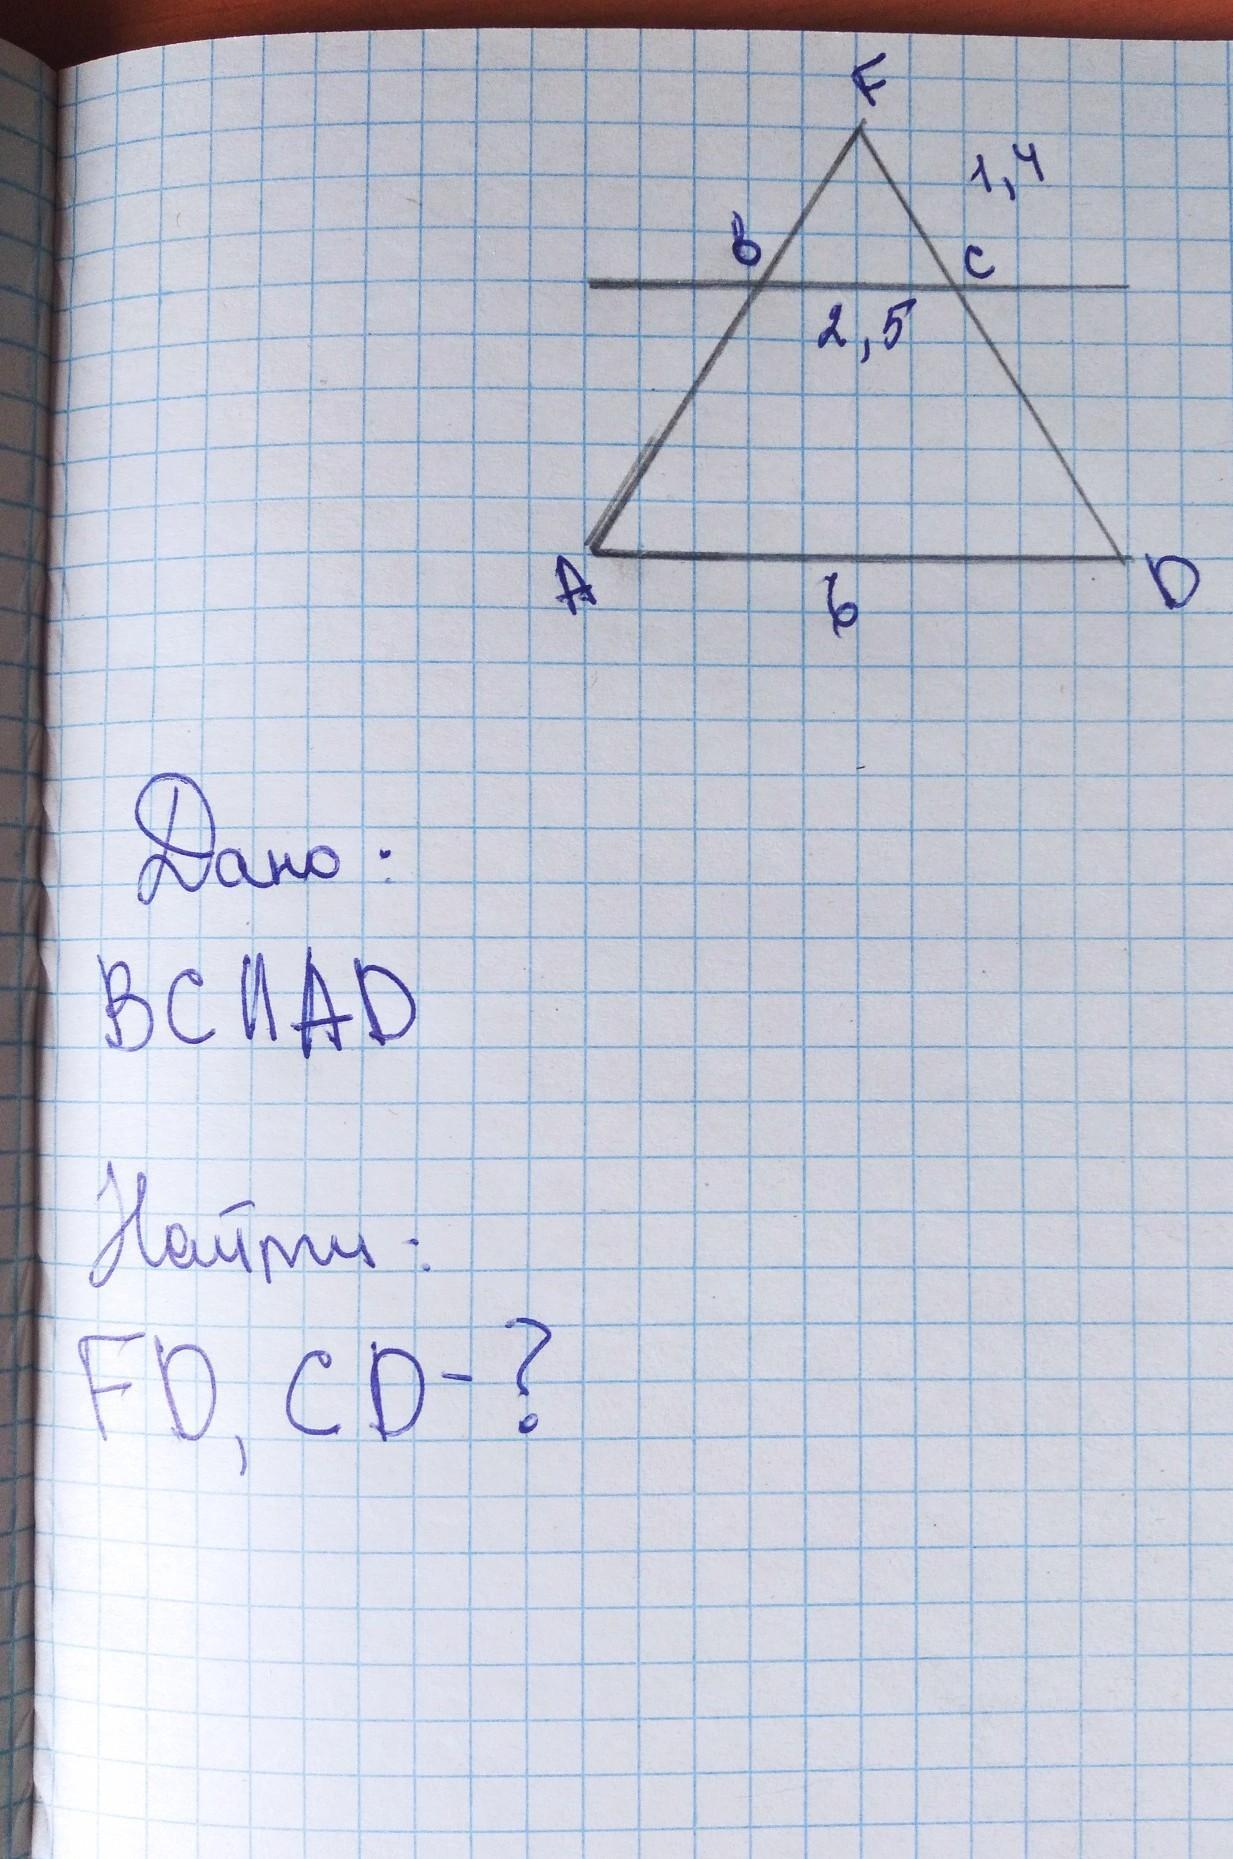 F
1,4
B
C
2,5
A
6
D
Дано:
BC || AD
Найти:
FD, CD - ?